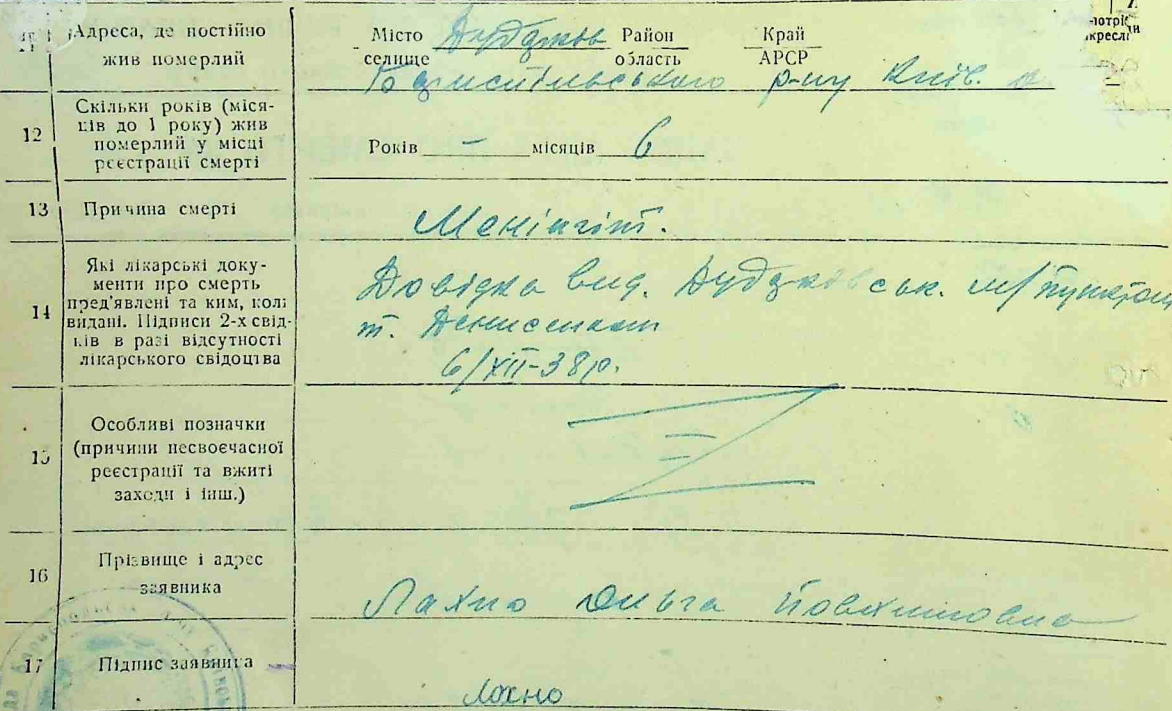 11 Адреса, де постійно жив померлий
Місто селище Дударков Район область Край АРСР
Бориспільського р-ну Київ.
12 Скільки років (місяців до 1 року) жив померлий у місці реєстрації смерті
Років — місяців 6
13 Причина смерті
Менінгіт.
14 Які лікарські документи про смерть пред'явлені та ким, коли видані. Підписи 2-х свідків в разі відсутності лікарського свідоцтва
Довідка вид. Дударківськ. м/пунктом
т. Денисенком
6/XII-38р.
15 Особливі позначки (причини несвоєчасної реєстрації та вжиті заходи і інш.)
16 Прізвище і адрес заявника
Лахно Ольга
17 Підпис заявника
Лохно